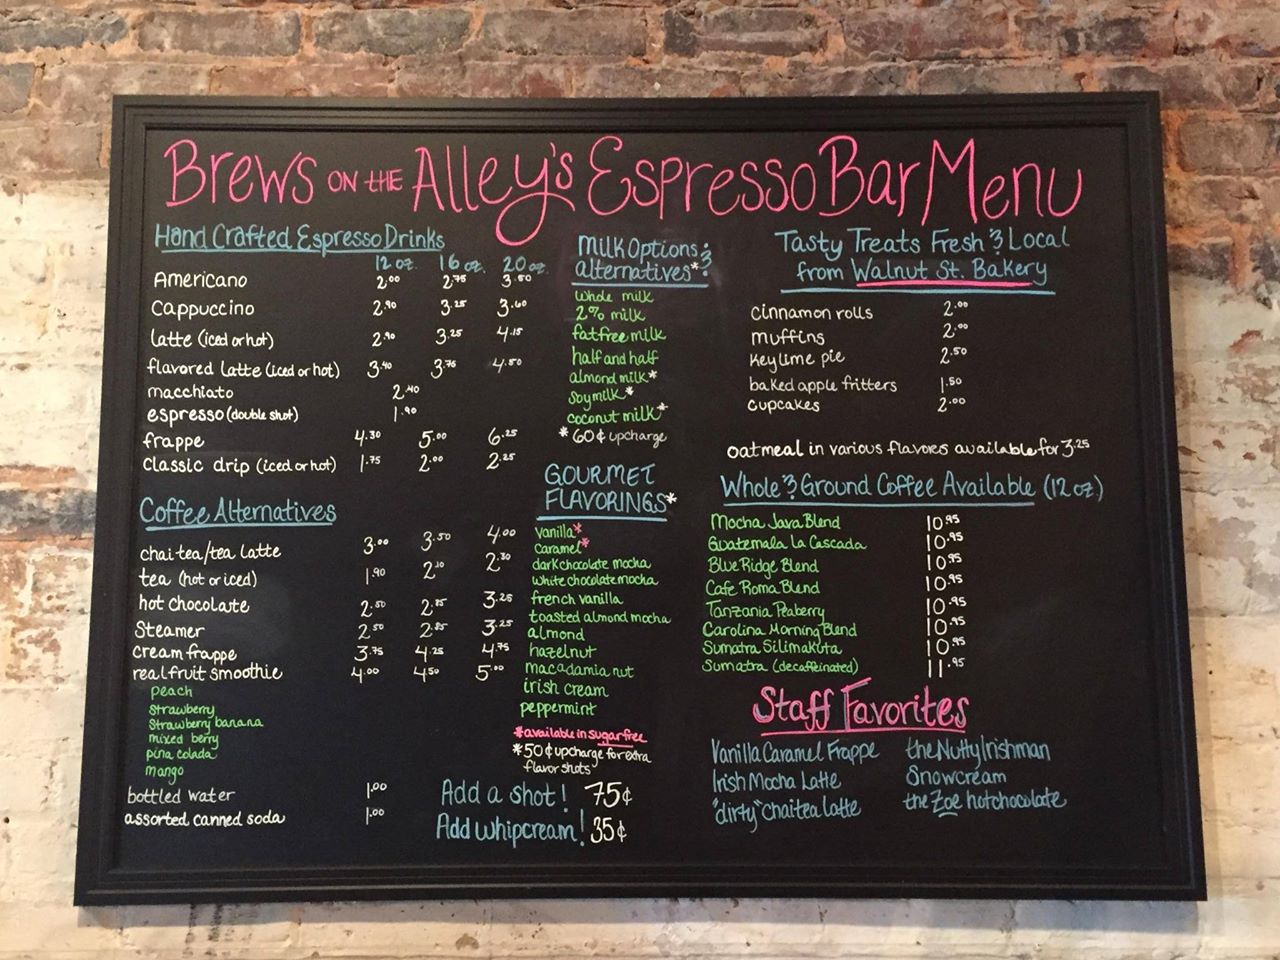 Brews on the Alley's Espresso Bar Menu
Hand Crafted Espresso Drinks
12 oz. 16 oz. 20 oz.
Americano 2.00 2.75 3.50
Cappuccino 2.90 3.25 3.60
latte (iced or hot) 2.90 3.25 4.15
flavored latte (iced or hot) 3.40 3.75 4.50
macchiato 2.40
espresso (double shot) 1.90
frappe 4.30 5.00 6.25
classic drip (iced or hot) 1.75 2.00 2.25
Coffee Alternatives
chai tea/tea latte 3.00 3.50 4.00
tea (hot or iced) 1.90 2.10 2.30
hot chocolate 2.50 2.85 3.25
Steamer 2.50 2.85 3.25
cream frappe 3.75 4.25 4.75
real fruit smoothie 4.00 4.50 5.00
peach
Strawberry
Strawberry banana
mixed berry
pina colada
mango
bottled water 1.00
assorted canned soda 1.00
Milk Options &
alternatives*:
whole milk
2% milk
fatfree milk
half and half
almond milk*
soy milk*
coconut milk*
*60¢ upcharge
GOURMET
FLAVORINGS*
vanilla*
caramel*
dark chocolate mocha
white chocolate mocha
french vanilla
toasted almond mocha
almond
hazelnut
macadamia nut
irish cream
peppermint
*available in sugar free
*50¢ upcharge for extra
flavor shots
Add a shot! 75¢
Add whipcream! 35¢
Tasty Treats Fresh & Local
from Walnut St. Bakery
cinnamon rolls 2.00
muffins 2.00
key lime pie 2.50
baked apple fritters 1.50
cupcakes 2.00
oatmeal in various flavores available for 3.25
Whole & Ground Coffee Available (12 oz)
Mocha Java Blend 10.95
Guatemala La Cascada 10.95
Blue Ridge Blend 10.95
Cafe Roma Blend 10.95
Tanzania Peaberry 10.95
Carolina Morning Blend 10.95
Sumatra Silimakuta 10.95
Sumatra (decaffeinated) 11.95
Staff Favorites
Vanilla Caramel Frappe
Irish Mocha Latte
"dirty" Chai tea Latte
the Nutty Irishman
Snowcream
the Zoe hot chocolate